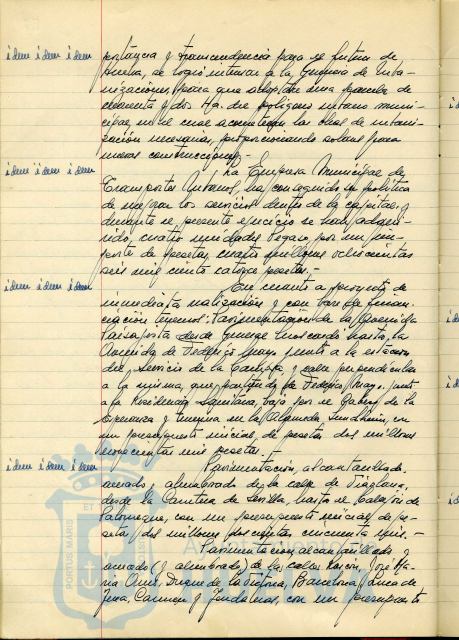 idem idem idem
portancia y transcendencia para el futuro de
Huelva, se logró interesar a la Gerencia de Urba-
nizaciones, para que adoptase una parcela de
cincuenta y dos Ha. del polígono urbano muni-
cipal, en el cual acometer las obras de urbani-
zación necesarias, proporcionando solares para
nuevas construcciones.-
idem idem idem
La Empresa Municipal de
Transportes Urbanos, ha conseguido su política
de mejorar los servicios dentro de la capital, y
durante el presente ejercicio se han adqui-
rido, cuatro unidades Pegaso, por un im-
porte de pesetas, cuatro millones ochocientas
seis mil ciento catorce pesetas.-
idem idem idem
En cuanto a proyectos de
inmediata realización y con base de finan-
ciación tenemos: Pavimentación de la Avenida
Paisajista desde Muelle hasta la
Avenida de Federico Mayo, junto a la estación
de Servicio de la Campsa y calle perpendicular
a la misma, que partiendo de Federico Mayo, junto
a la Residencia Sanitaria, baja por el Cabezo de la
Esperanza y termina en la Alameda Sundheim, con
un presupuesto inicial de pesetas dos millones
novecientas mil pesetas.-
idem idem idem
Pavimentación, alcantarillado,
acerado y alumbrado de la calle de
desde la Carretera de Sevilla, hasta el
Palomeque, con un presupuesto inicial de pe-
setas, dos millones doscientas cincuenta mil.-
Pavimentación, alcantarillado,
acerado y alumbrado de las calles Rascón, José Ma-
ría Duque de la Victoria, Barcelona, Luca de
Tena, Carmen y Gendalmar, con un presupuesto
PORTUS MARIS ET